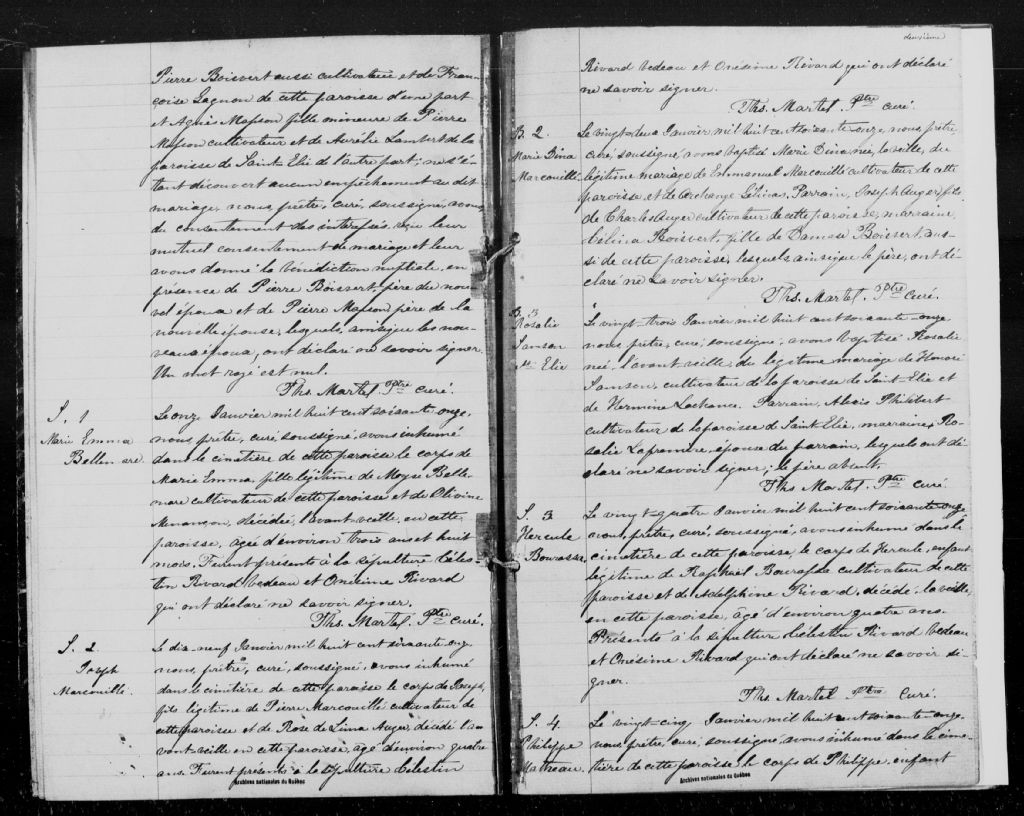 Pierre Boisvert aussi cultivateur et de Fran-
çoise Gagnon de cette paroisse d'une part
et Agnès Masson fille mineure de Pierre
Masson cultivateur et de Aurélie Lambert de la
paroisse de Saint Elie de l'autre part; ne s'é-
tant découvert aucun empêchement au dit
mariage, nous, prêtre, curé, soussigné, avons,
du consentement des intéressés, reçu leur
mutuel consentement de mariage et leur
avons donné la bénédiction nuptiale en
présence de Pierre Boisvert, père du nou-
vel époux et de Pierre Masson père de la
nouvelle épouse, lesquels, ainsi que les nou-
veaux époux, ont déclaré ne savoir signer.
Un mot rayé est nul.
Ths. Martel Ptre Curé.
S. 1
Marie Emma
Bellemare.
Le onze Janvier mil huit cent soixante onze,
nous, prêtre, curé, soussigné, avons inhumé
dans le cimetière de cette paroisse le corps de
Marie Emma, fille légitime de Moyse Belle-
mare cultivateur de cette paroisse et de Olivine
décédée, l'avant-veille, en cette
paroisse, âgée d'environ trois ans et huit
mois. Furent présents à la sépulture Céles-
tin Rivard Bedeau et Onésime Rivard
qui ont déclaré ne savoir signer.
Ths. Martel. Ptre Curé.
S. 2
Joseph
Marcouillé.
Le dix-neuf Janvier mil huit cent soixante onze
nous, prêtre, curé, soussigné, avons inhumé
dans le cimetière de cette paroisse le corps de Joseph,
fils légitime de Pierre Marcouillé cultivateur de
cette paroisse et de Rose de Lima Auger, décédé l'a-
vant veille en cette paroisse, âgé d'environ quatre
ans. Furent présents à la sépulture Célestin
Archives nationales du Québec
deuxième
Rivard Bedeau et Onésime Rivard qui ont déclaré
ne savoir signer.
Ths. Martel. Ptre Curé.
B. 2.
Marie Dina
Marcouillé
Le vingt-deux Janvier mil huit cent soixante onze, nous, prêtre,
curé, soussigné, avons baptisé Marie Dina née, la veille, du
légitime mariage de Emmanuel Marcouillé cultivateur de cette
paroisse et de Archange Gélinas. Parrain, Joseph Auger, fils
de Charles Auger cultivateur de cette paroisse, marraine,
Célina Boisvert, fille de Damase Boisvert, aus-
si de cette paroisse, lesquels ainsi que le père, ont dé-
claré ne savoir signer.
Ths. Martel. Ptre Curé.
B. 3
Rosalie
Samson
St Elie
Le vingt-trois Janvier mil huit cent soixante-onze
nous, prêtre, curé, soussigné, avons baptisé Rosalie
née, l'avant veille, du légitime mariage de Honoré
Samson, cultivateur de la paroisse de Saint-Elie et
de Hermine Lachance. Parrain, Aloïs Philibert
cultivateur de la paroisse de Saint Elie, marraine, Ro-
salie épouse du parrain, lesquels ont dé-
claré ne savoir signer; le père absent.
Ths. Martel. Ptre Curé
S. 3
Hercule
Bourassa.
Le vingt-quatre Janvier mil huit cent soixante onze
nous, prêtre, curé, soussigné, avons inhumé dans le
cimetière de cette paroisse, le corps de Hercule, enfant
légitime de Raphaël Bourassa cultivateur de cette
paroisse et de Adelphine Rivard, décédé, la veille,
en cette paroisse, âgé d'environ quatre ans.
Présents à la sépulture Célestin Rivard Bedeau
et Onésime Rivard qui ont déclaré ne savoir si-
gner.
Ths. Martel Ptre Curé.
S. 4
Philippe
Le vingt-cinq Janvier mil huit cent soixante onze
nous, prêtre, curé, soussigné, avons inhumé dans le cime-
tière de cette paroisse, le corps de Philippe, enfant
Archives nationales du Québec